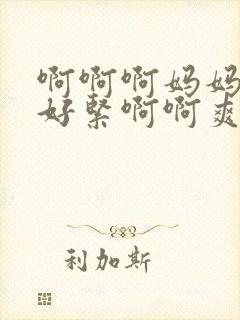 啊啊啊妈妈
好紧啊啊爽
利加斯